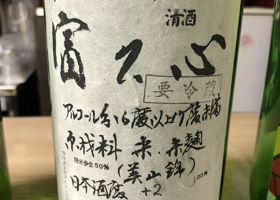 清酒
富久心
要冷蔵
アルコール分16度以上17度未満
原材料 米.米麹
精米歩合50% (美山錦) 100%
日本酒度 +2